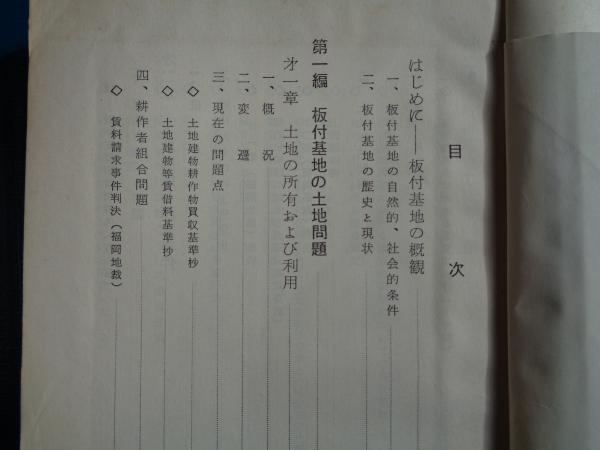 目次
はじめに――板付基地の概観
一、板付基地の自然的、社会的条件
二、板付基地の歴史と現状
第一編 板付基地の土地問題
才一章 土地の所有および利用
一、概況
二、変遷
三、現在の問題点
◇ 土地建物耕作物買収基準抄
◇ 土地建物等賃借料基準抄
四、耕作者組合問題
◇ 賃料請求事件判決(福岡地裁)